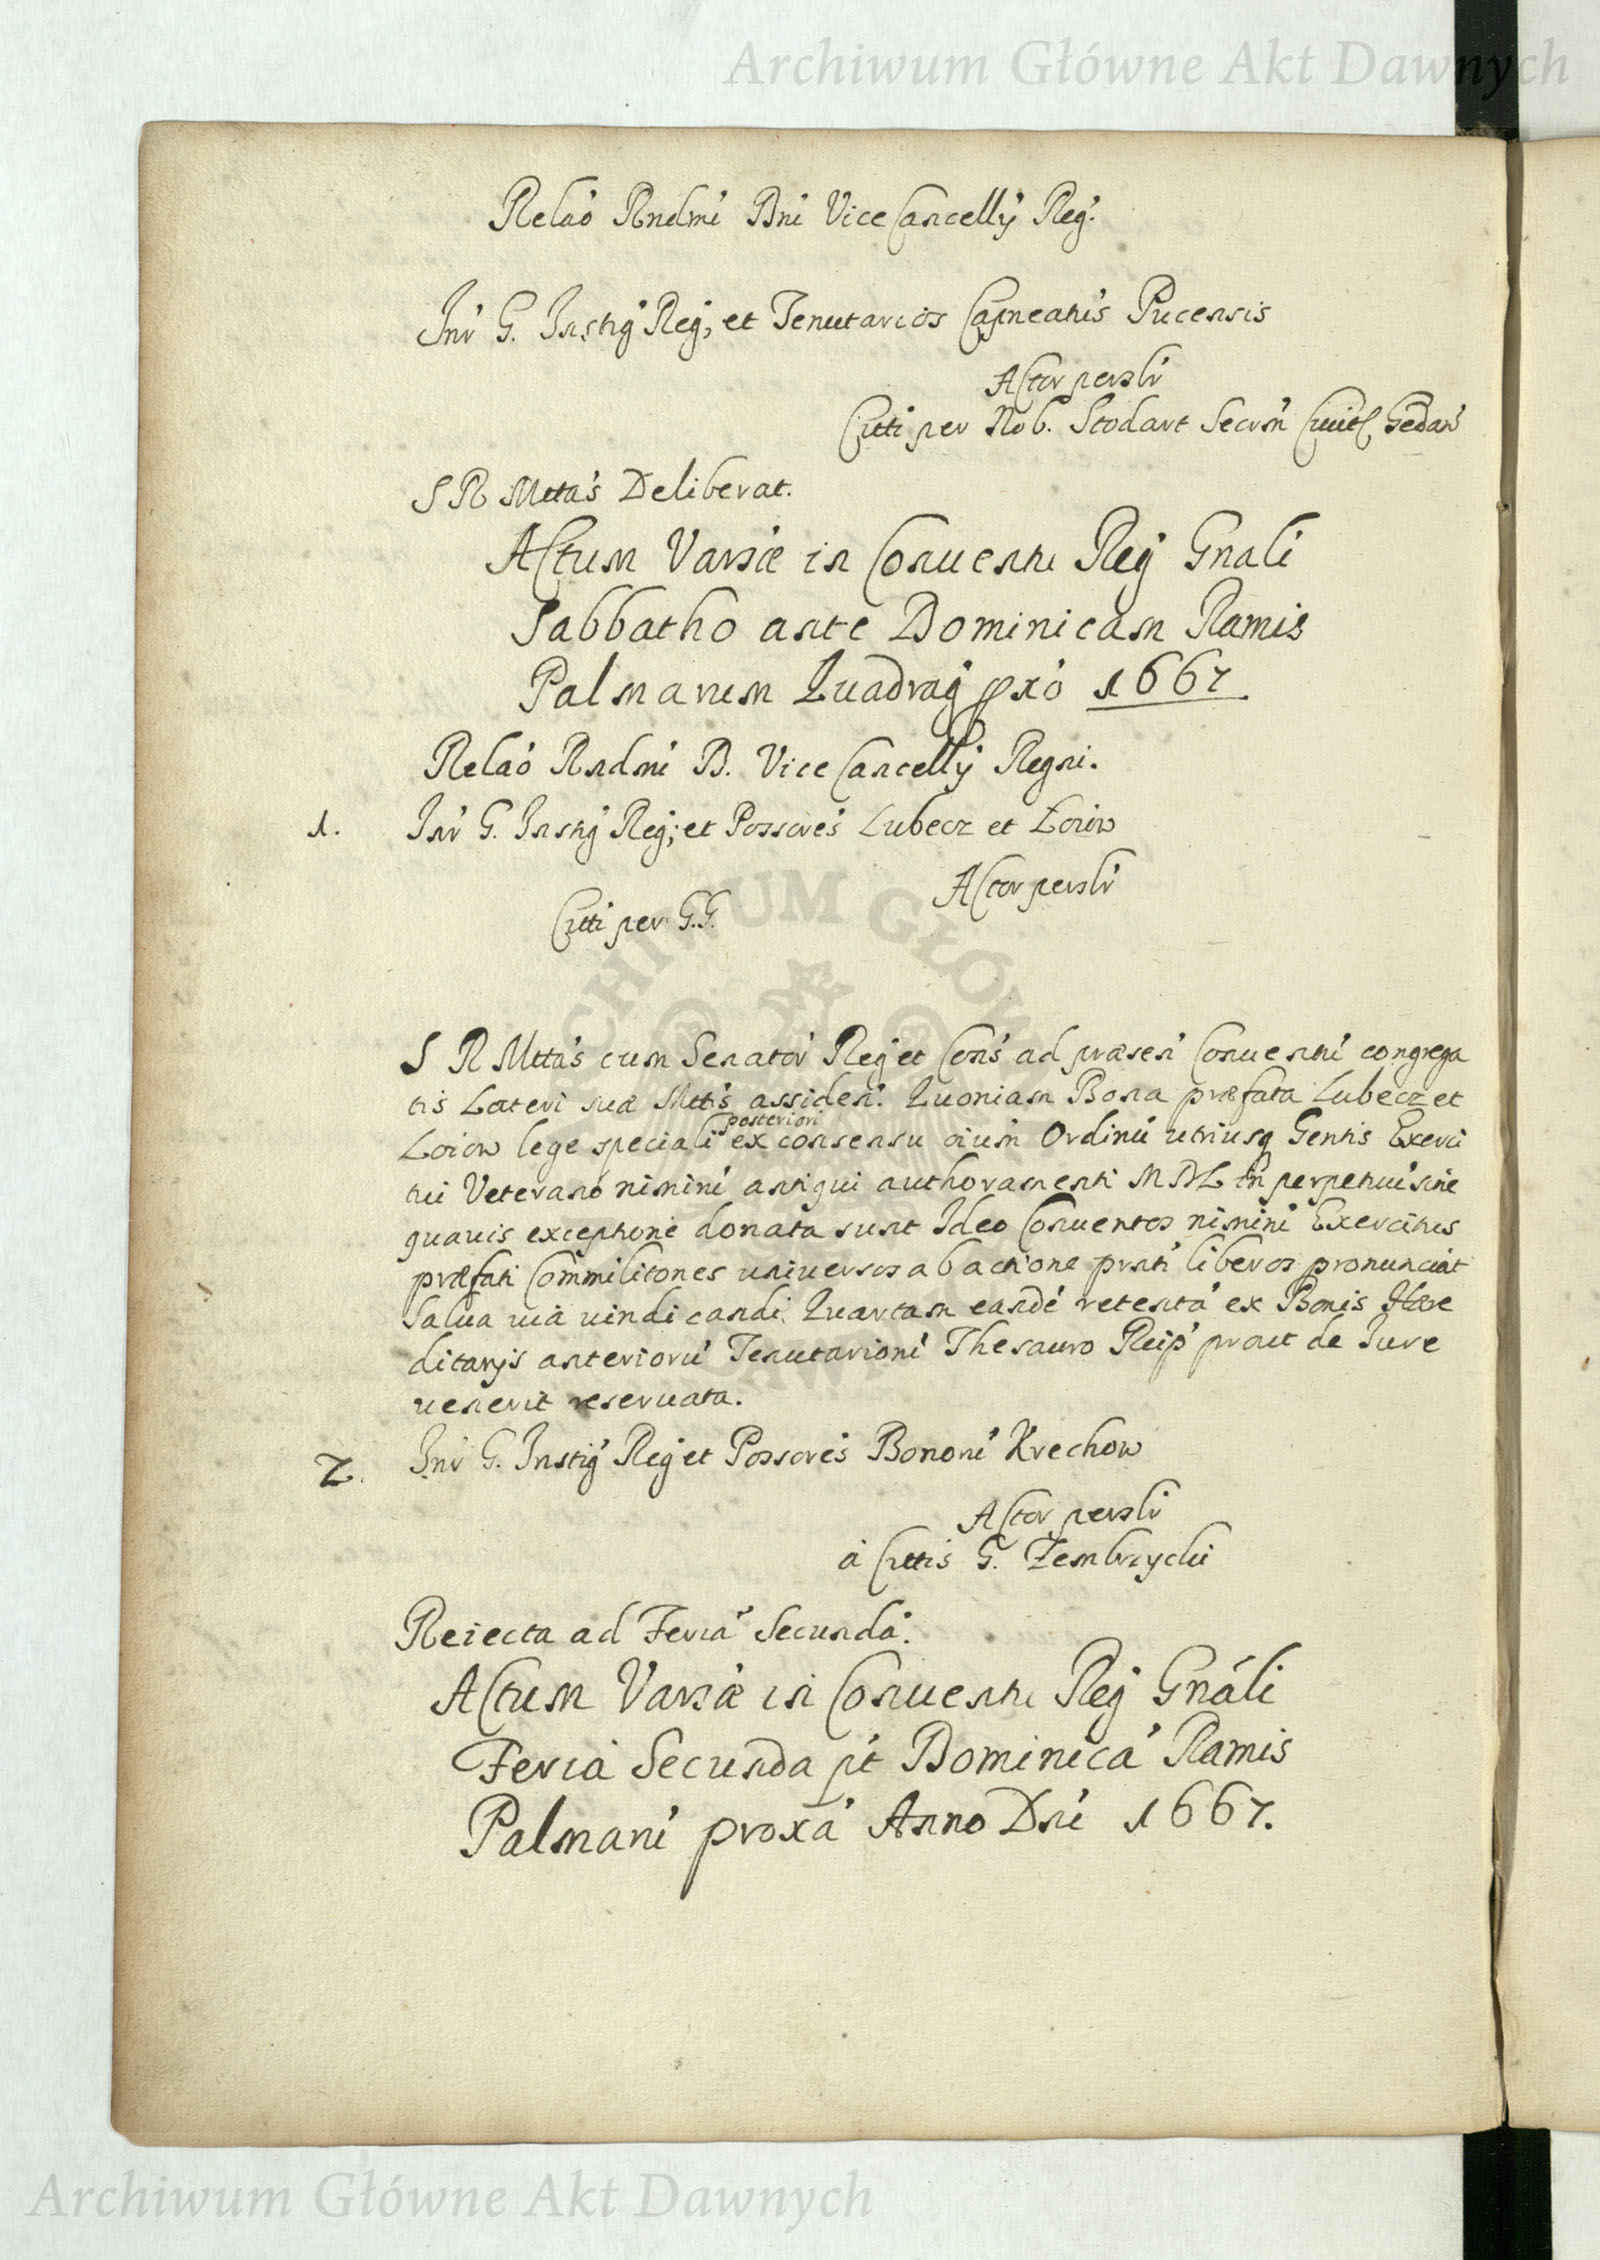 Archiwum Główne Akt Dawnych
Relaó Rndmi Dni ViceCancellÿ Reg.
Inr G. Instig Regi, et Tenutarios Capneatus Pucensis
Actor persblr
Citti per Nob. Stodart Secrm Ciuitt Gedan
S R Mttas Deliberat.
Actum Varsiæ in Conuentu Reg Gnali
Sabbatho ante Dominicam Ramis
Palmarum Quadrag pxo 1667.
Relaó Rndmi D. ViceCancellÿ Regni.
1. Inr G. Instig Reg; et Possores Lubecz et Loiow
Actor persblr
Citti per G.G.
S R Mttas cum Senator Reg et Cons ad præsen Conuentu congrega
tis Lateri suæ Mttis assiden. Quoniam Bona præfata Lubecz et
posteriori
Loiow lege speciali ex consensu oium Ordinu utriusq Gentis Exerci
tui Veterano nimiru antiqui authoramenti MDL in perpetuu sine
quauis exceptione donata sunt Ideo Conuentos nimiru Exercitus
præfati Commilitones uniuersos ab actione pnti liberos pronunciat
Salua uia uindicandi Quartam eande retenta ex Bonis Hære
ditarÿs anterioru Tenutarioru Thesauro Reip prout de Iure
uenerit reseruata.
2. Inr G. Instig Reg et Possores Bonoru Krechow
Actor persblr
a Cittis G. Zembrzycki
Reiecta ad Feria Secunda.
Actum Varsiæ in Conuentu Reg Gnáli
Feria Secunda pt Dominica Ramis
Palmaru proxa Anno Dni 1667.
ARCHIWUM GŁÓWNE
DAWNYCH
Archiwum Główne Akt Dawnych